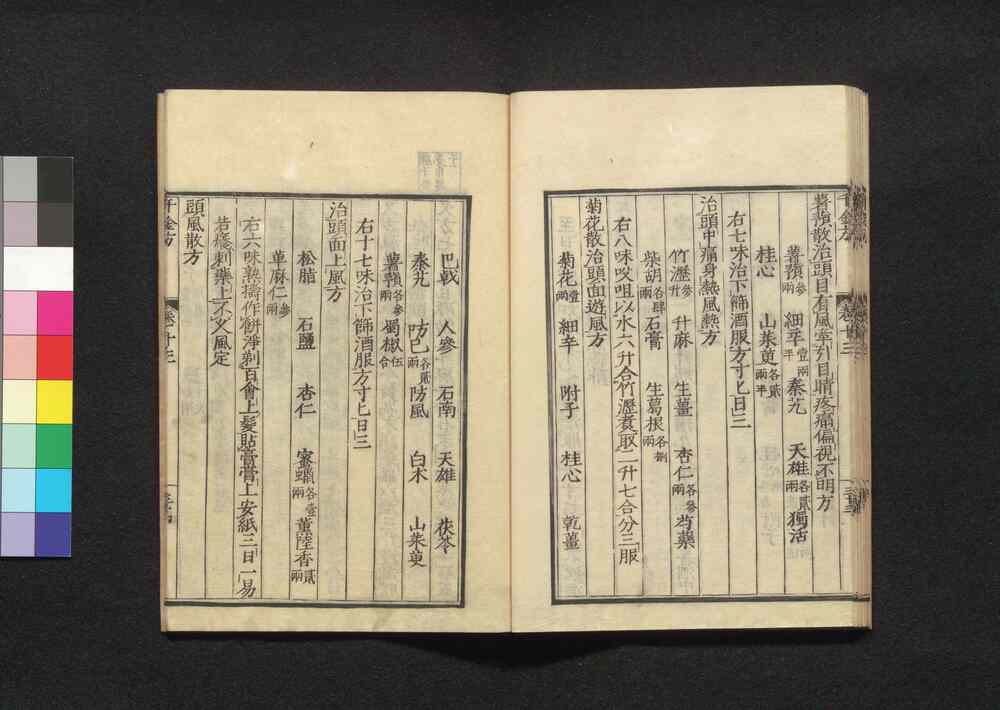 薯蕷散治頭目有風牽引目睛疼痛偏視不明方
薯蕷參兩 細辛壹兩半 秦艽 天雄各貳兩 獨活
桂心 山茱萸各貳兩半
右七味治下篩酒服方寸匕日三
治頭中痛身熱風熱方
竹瀝參升 升麻 生薑 杏仁各參兩 芍藥
柴胡各肆兩 石膏 生葛根各捌兩
右八味㕮咀以水六升合竹瀝煮取二升七合分三服
菊花散治頭面遊風方
菊花壹兩 細辛 附子 桂心 乾薑
巴戟 人參 石南 天雄 茯苓
秦艽 防己各貳兩 防風 白朮 山茱萸
薯蕷各參兩 蜀椒伍合
右十七味治下篩酒服方寸匕日三
治頭面上風方
松脂 石鹽 杏仁 蜜蠟各壹兩 薰陸香貳兩
萆麻仁參兩
右六味熟擣作餅淨剃百會上髮貼膏膏上安紙三日一易
若癢刺藥上不久風定
頭風散方
千金方 卷十三